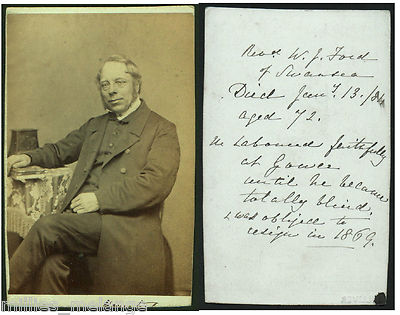 Revd. W. J. Ford
of Swansea
Died Jany. 13. /84
aged 72.
He Laboured faithfully
at Gower
until he became
totally blind;
& was obliged to
resign in 1869.